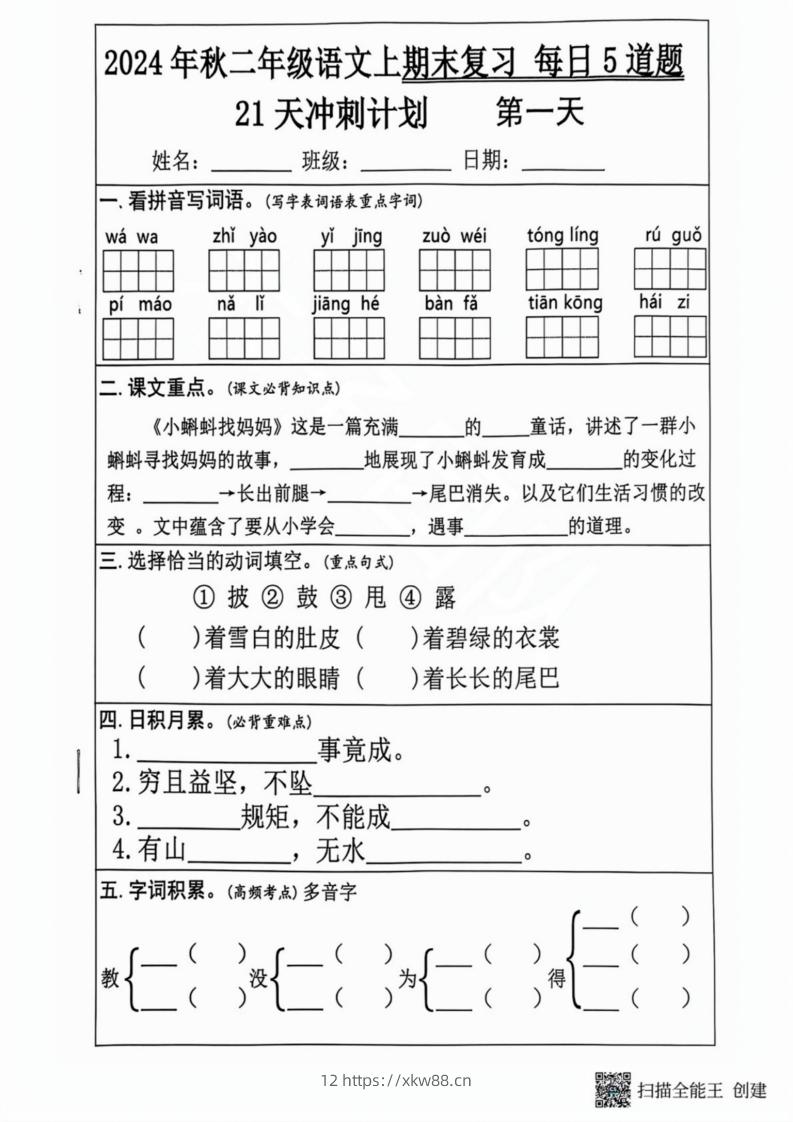 2024年秋二年级语文上期末复习 每日5道题
21天冲刺计划 第一天
姓名：______ 班级：______ 日期：______
一.看拼音写词语。(写字表词语表重点字词)
wá wa zhǐ yào yǐ jīng zuò wéi tóng líng rú guǒ
pí máo nǎ lǐ jiāng hé bàn fǎ tiān kōng hái zi
二.课文重点。(课文必背知识点)
《小蝌蚪找妈妈》这是一篇充满______的____童话，讲述了一群小
蝌蚪寻找妈妈的故事，______地展现了小蝌蚪发育成______的变化过
程：______→长出前腿→______→尾巴消失。以及它们生活习惯的改
变 。文中蕴含了要从小学会______，遇事________的道理。
三.选择恰当的动词填空。(重点句式)
① 披 ② 鼓 ③ 甩 ④ 露
( )着雪白的肚皮 ( )着碧绿的衣裳
( )着大大的眼睛 ( )着长长的尾巴
四.日积月累。(必背重难点)
1.____________事竟成。
2.穷且益坚，不坠____________。
3.________规矩，不能成__________。
4.有山________，无水____________。
五.字词积累。(高频考点)多音字
___( ) ___( ) ___( ) ___( )
教 没 为 得 ___( )
___( ) ___( ) ___( ) ___( )
12 https://xkw88.cn
扫描全能王 创建